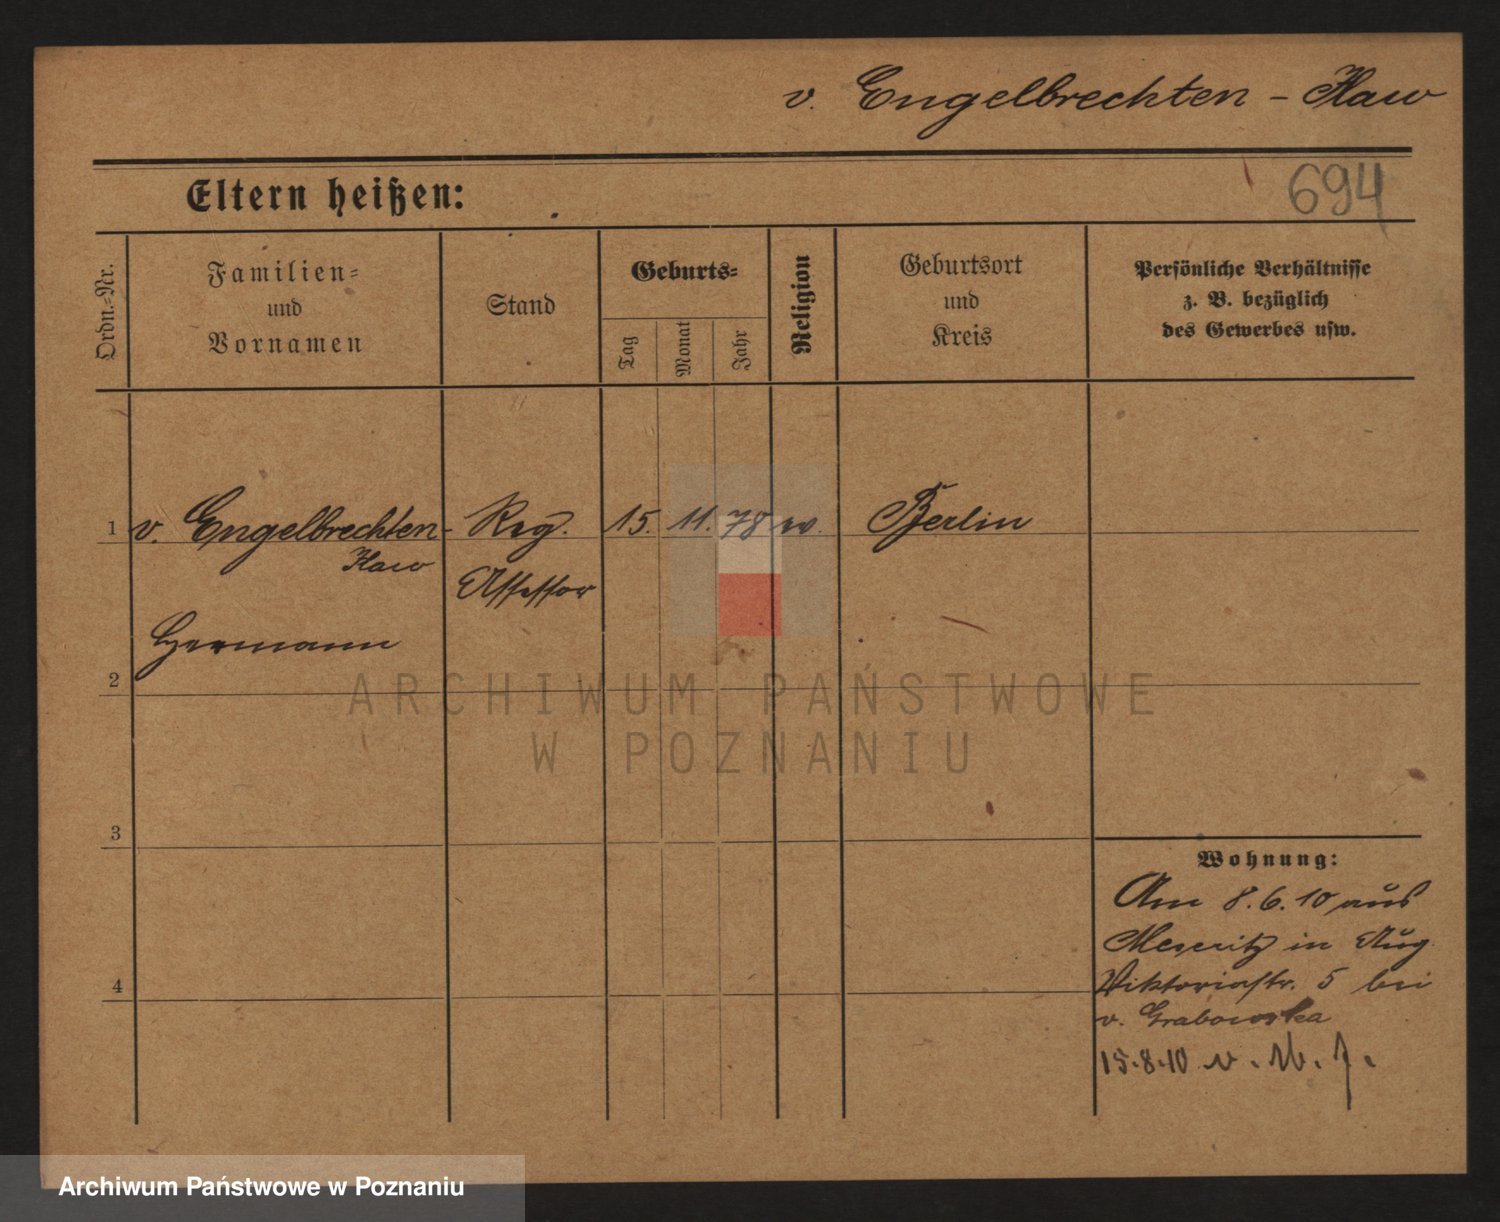 v. Engelbrechten - Haw
Eltern heißen:
694
Ordn.=Nr.
Familien=
und
Vornamen
Stand
Geburts=
Tag
Monat
Jahr
Religion
Geburtsort
und
Kreis
Persönliche Verhältnisse
z. B. bezüglich
des Gewerbes usw.
1 v. Engelbrechten- Reg. 15. 11. 78 ev. Berlin
Haw
Assessor
Hermann
2
ARCHIWUM PAŃSTWOWE
W POZNANIU
3
Wohnung:
Am 8.6.10 aus
Meseritz in Aug
4
Viktoriastr. 5 bei
v. Grabowska
15.8.10 v.
Archiwum Państwowe w Poznaniu